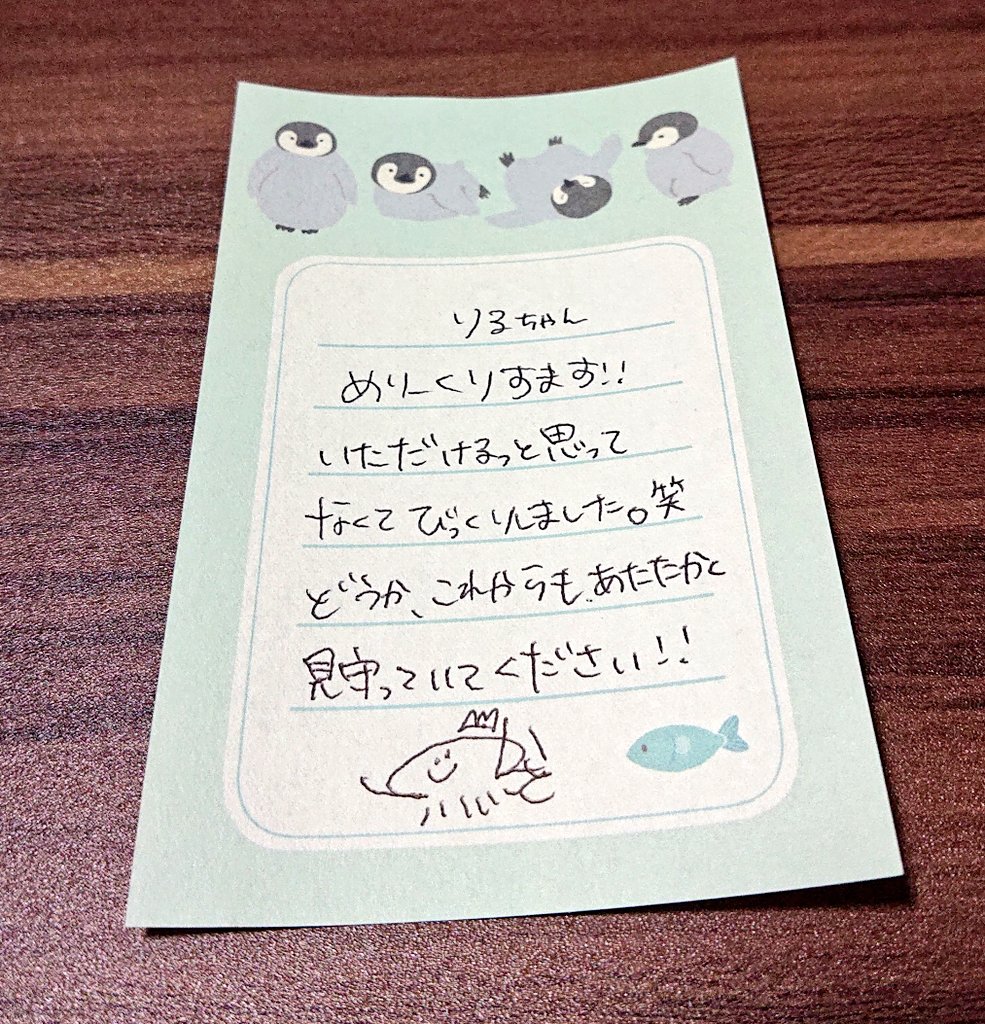 りるちゃん
めりーくりすます!!
いただけるっと思って
なくてびっくりしました。笑
どうか、これからも、あたたかく
見守っていてください!!